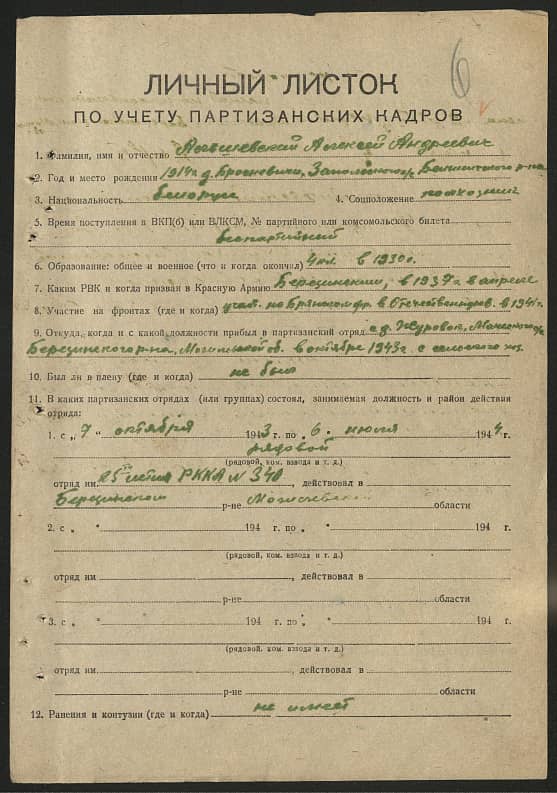 6
ЛИЧНЫЙ ЛИСТОК
ПО УЧЕТУ ПАРТИЗАНСКИХ КАДРОВ
1. Фамилия, имя и отчество Алексей Андреевич
2. Год и место рождения 1914 г. д. р-на
3. Национальность белорус 4. Соцположение колхозник
5. Время поступления в ВКП(б) или ВЛКСМ, № партийного или комсомольского билета
беспартийный
6. Образование: общее и военное (что и когда окончил) 4 кл. в 1930 г.
7. Каким РВК и когда призван в Красную Армию Березинским, в 1937 г. в апреле
8. Участие на фронтах (где и когда) участ. на Брянском фр. в Отечествен. в 1941 г.
9. Откуда, когда и с какой должности прибыл в партизанский отряд с д. Журовок,
Березинского р-на, Могилевской об. в октябре 1943 г. с сельского хоз.
10. Был ли в плену (где и когда) не был
11. В каких партизанских отрядах (или группах) состоял, занимаемая должность и район действия
отряда:
1. с „ 7 “ октября 1943 г. по „ 6 “ июля 1944 г.
рядовой
(рядовой, ком. взвода и т. д.)
отряд им 25 летия РККА № 340, действовал в
Березинском р-не Могилевской области
2. с „ “ 194 г. по „ “ 194 г.
(рядовой, ком. взвода и т. д.)
отряд им , действовал в
р-не области
3. с „ “ 194 г. по „ “ 194 г.
(рядовой, ком. взвода и т. д.)
отряд им , действовал в
р-не области
12. Ранения и контузии (где и когда) не имеет